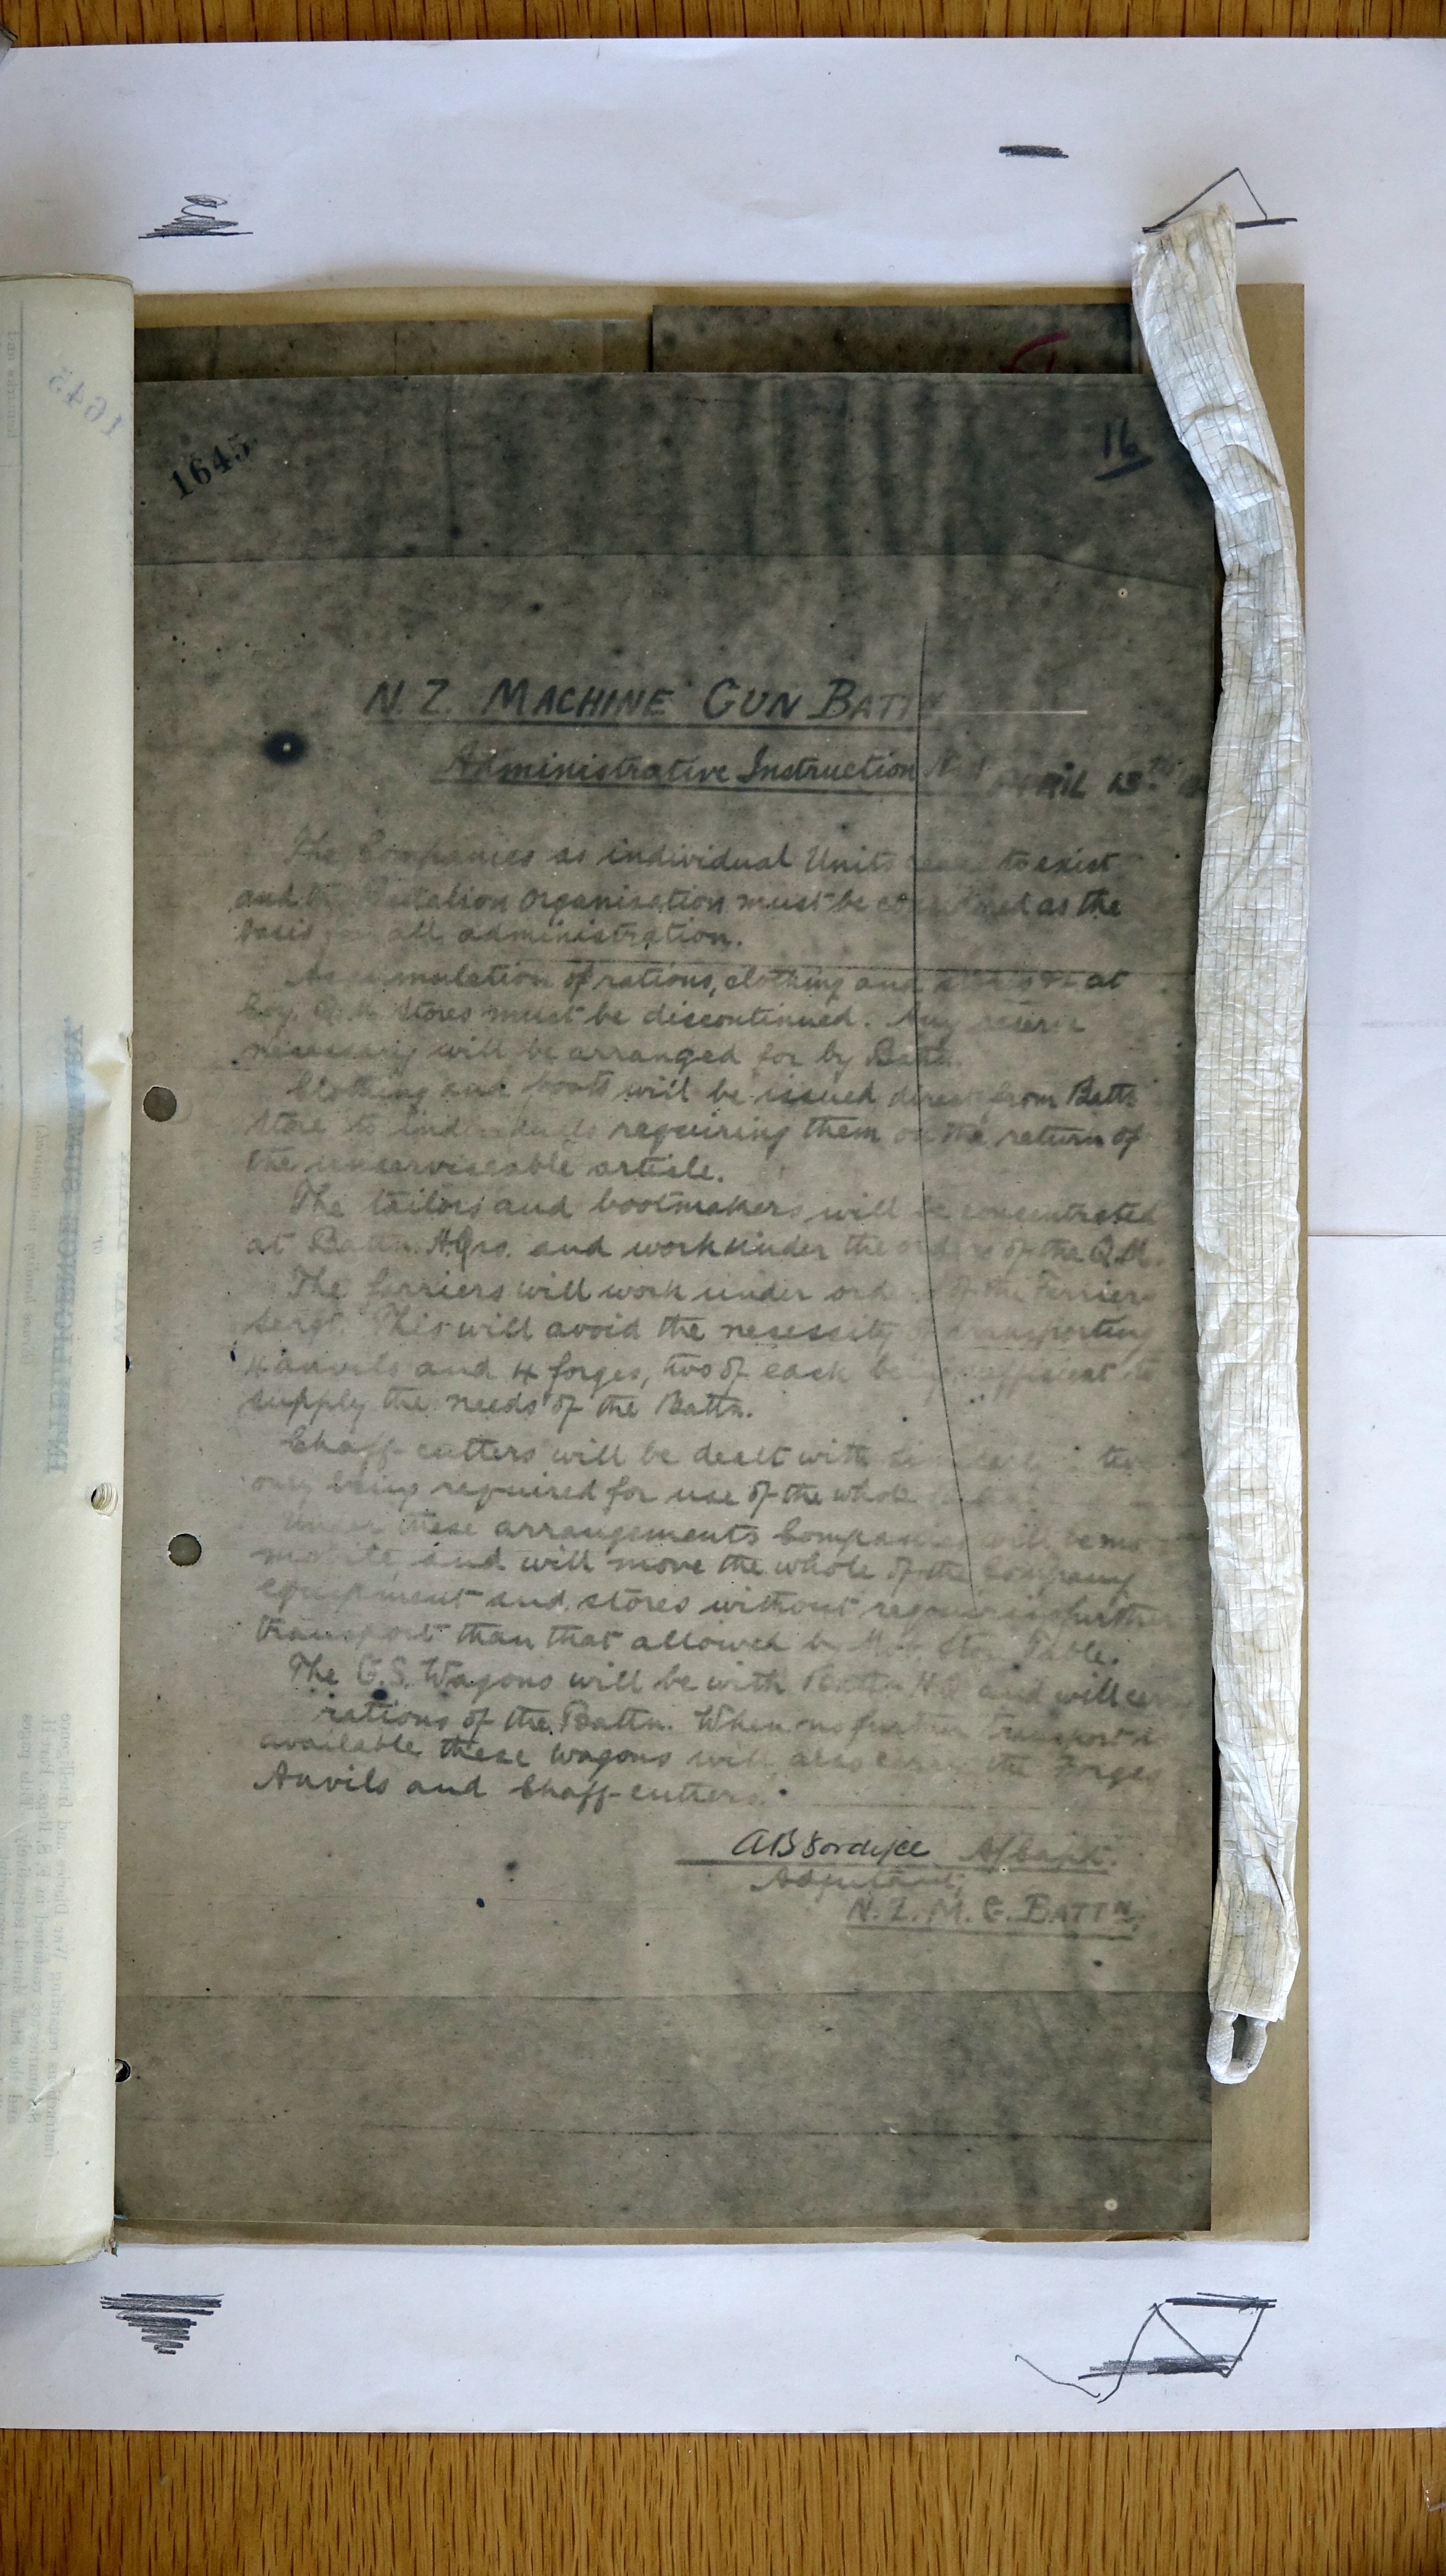 1645
16
N.Z. MACHINE GUN BATTN
Administrative Instruction APRIL 13th
The Companies as individual Units cease to exist
and the Battalion Organisation must be considered as the
basis all administration.
Accumulation of rations, clothing and stores at
Coy. Q.M. Stores must be discontinued. Any reserve
necessary will be arranged for by Battn.
Clothing and boots will be issued direct from Battn
store to individuals requiring them on the return of
the unserviceable article.
The tailors and bootmakers will be concentrated
at Battn. Hqrs. and work under the orders of the Q.M.
The farriers will work under orders of the Farrier
Sergt. This will avoid the necessity of transporting
4 anvils and 4 forges, two of each being sufficient to
supply the needs of the Battn.
Chaff-cutters will be dealt with similarly two
only being required for use of the whole
Under these arrangements Companies will be
mobile, and will move the whole of the Company
equipment and stores without requiring further
transport than that allowed by Mob. Store Table.
The G.S. Wagons will be with Battn H.Q. and will carry
rations of the Battn. When no further transport is
available these wagons will also carry the Forges
Anvils and Chaff-cutters.
A/Capt.
Adjutant,
N.Z.M.G. BATTN.